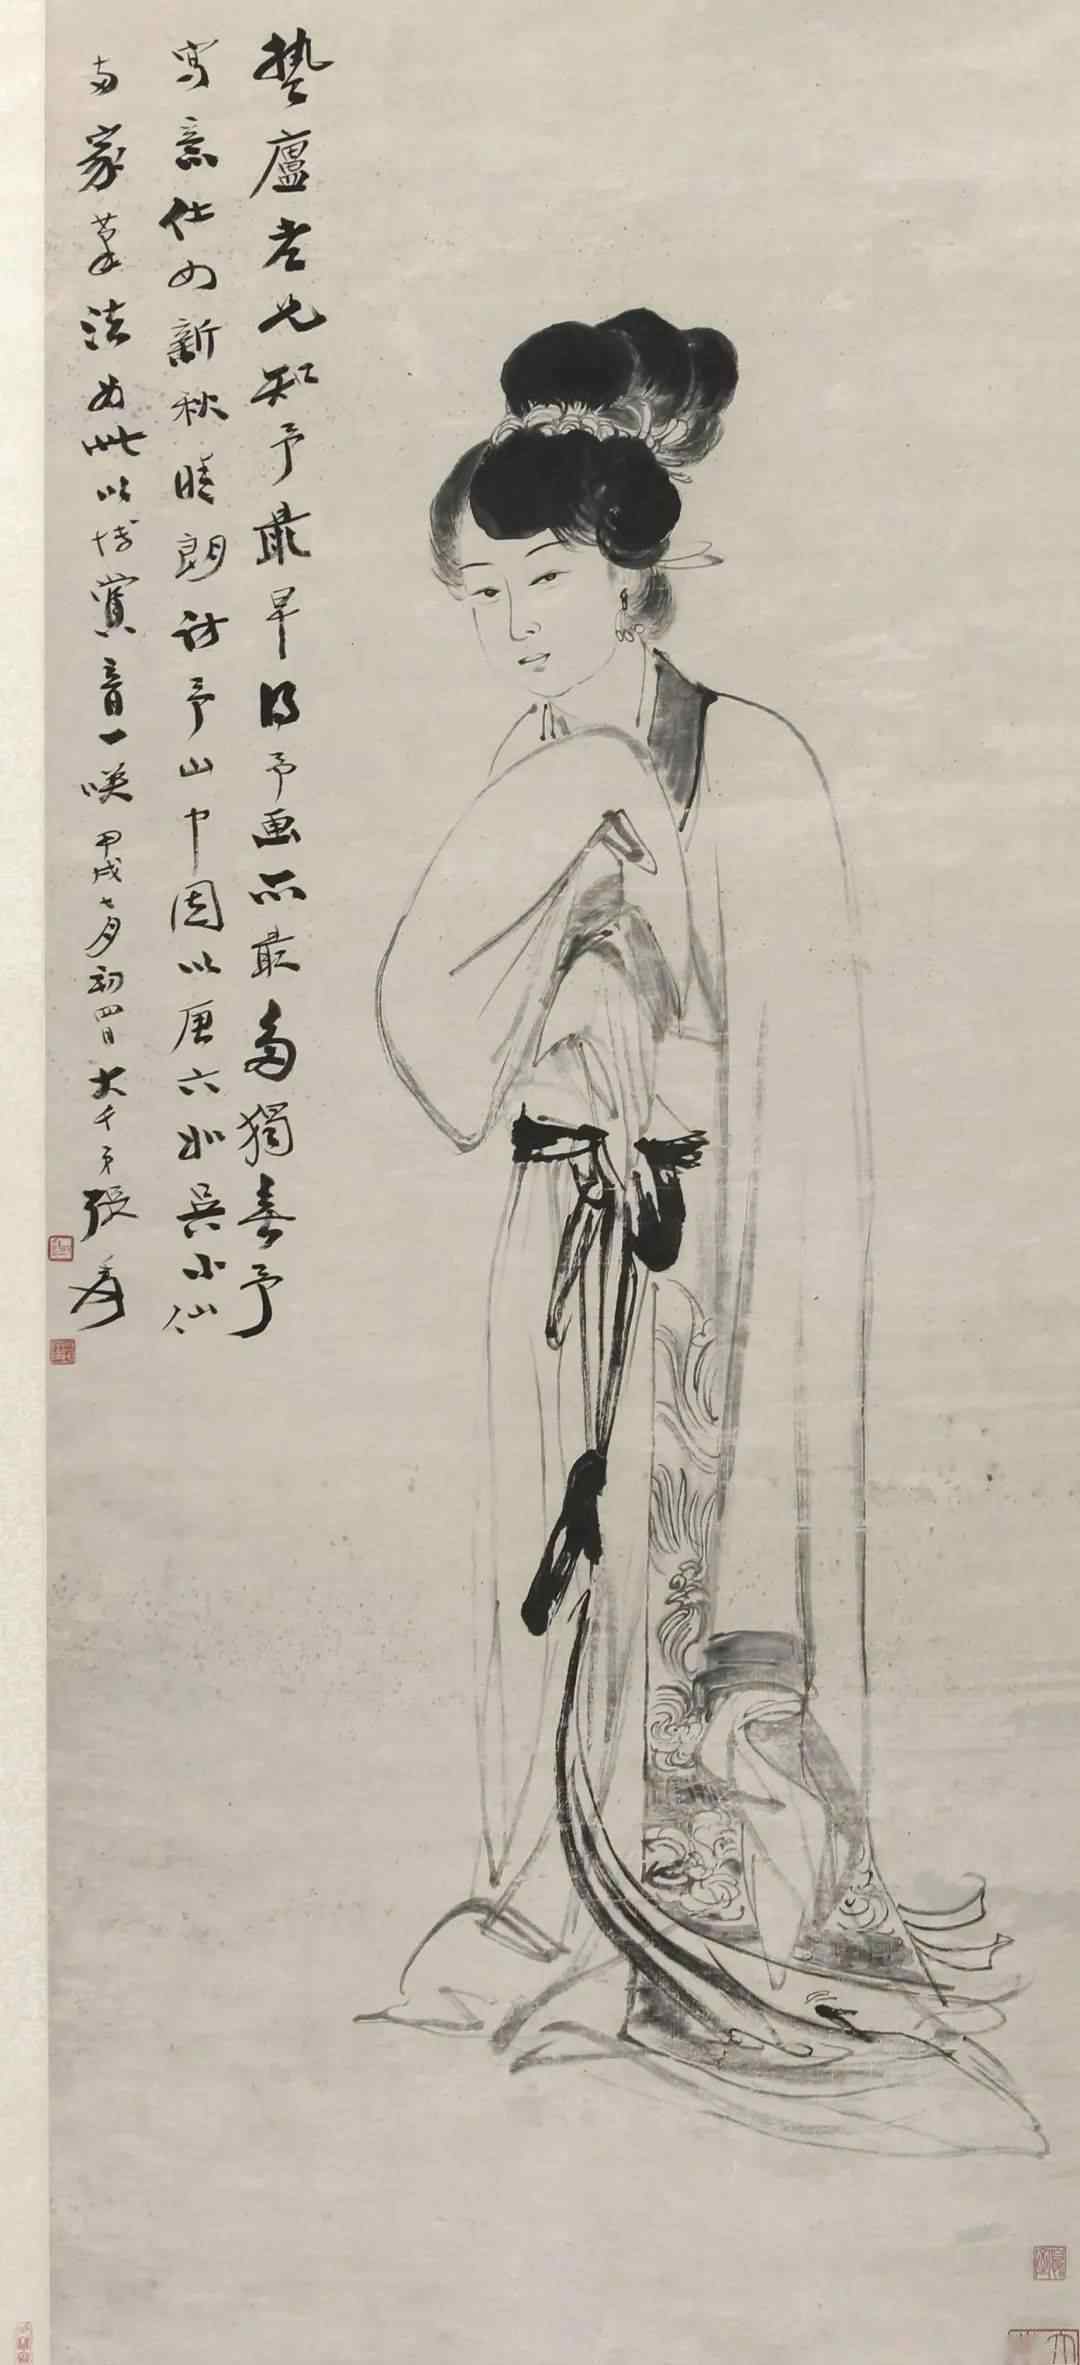 廬老兄知予最早得予画亦最多獨喜予
寫意仕女新秋晴朗訪予山中因以唐六如吳小仙
兩家筆法為此以博賞音一咲甲戌七月初四日大千弟張爰